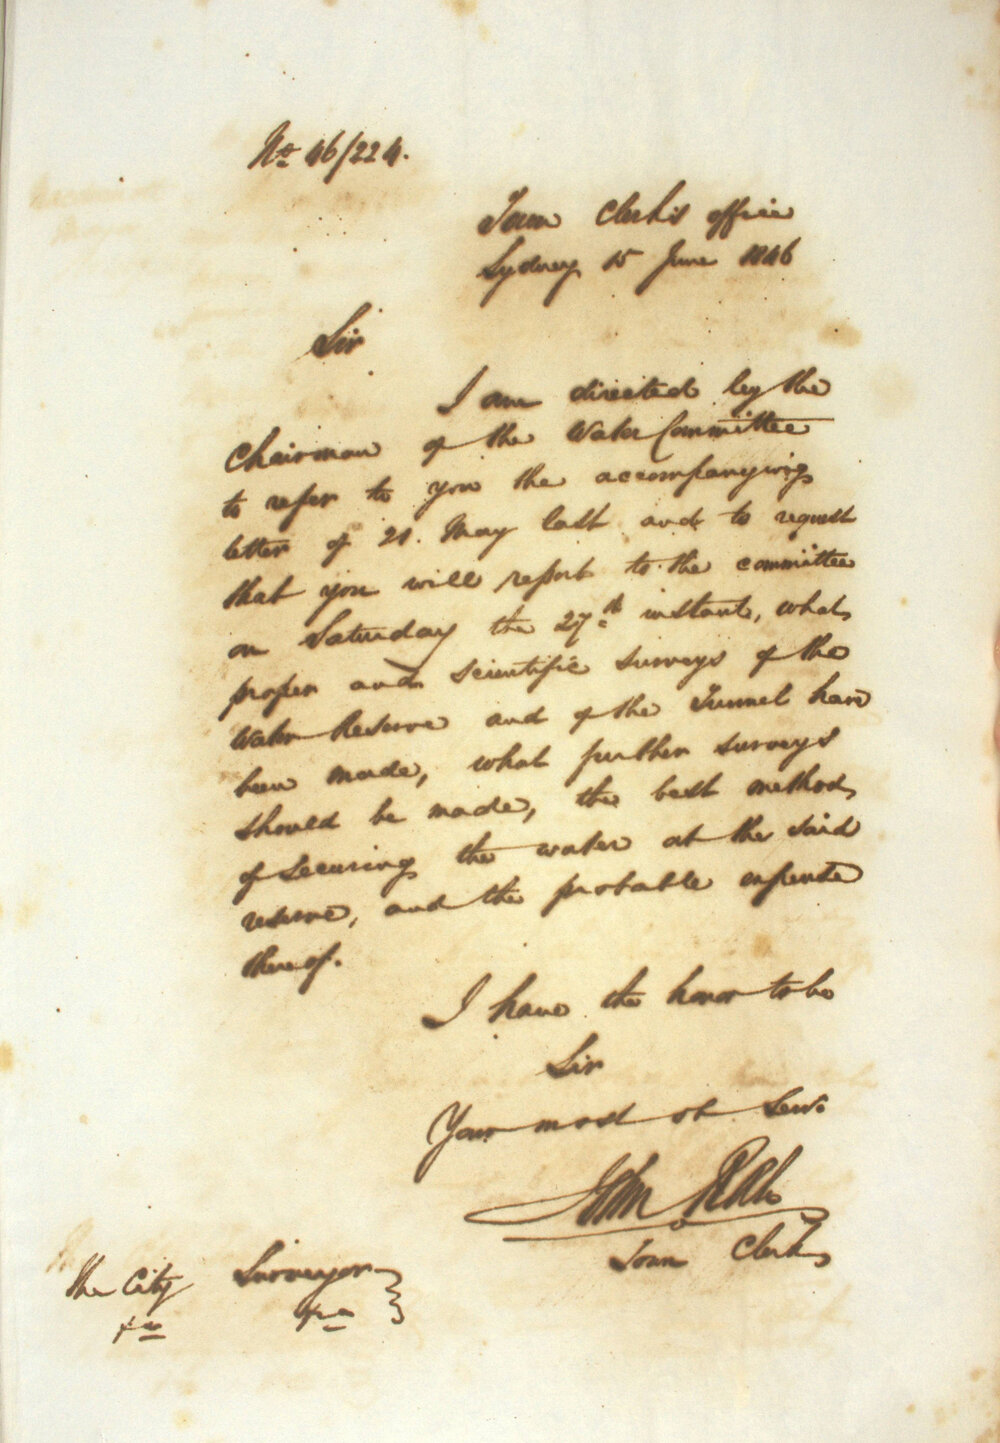 No 46/224.
Town Clerk's office
Sydney 15 June 1846
Sir
I am directed by the
Chairman of the Water Committee
to refer to you the accompanying
letter of 21. May last and to request
that you will report to the committee
on Saturday the 27th instant, what
proper and scientific surveys of the
Water Reserve and of the Tunnel have
been made, what further surveys
should be made, the best method
of securing the water at the said
reserve, and the probable expense
thereof.
I have the honor to be
Sir
Your most ob Serv.
John
Town Clerk
The City Surveyor
&c &c